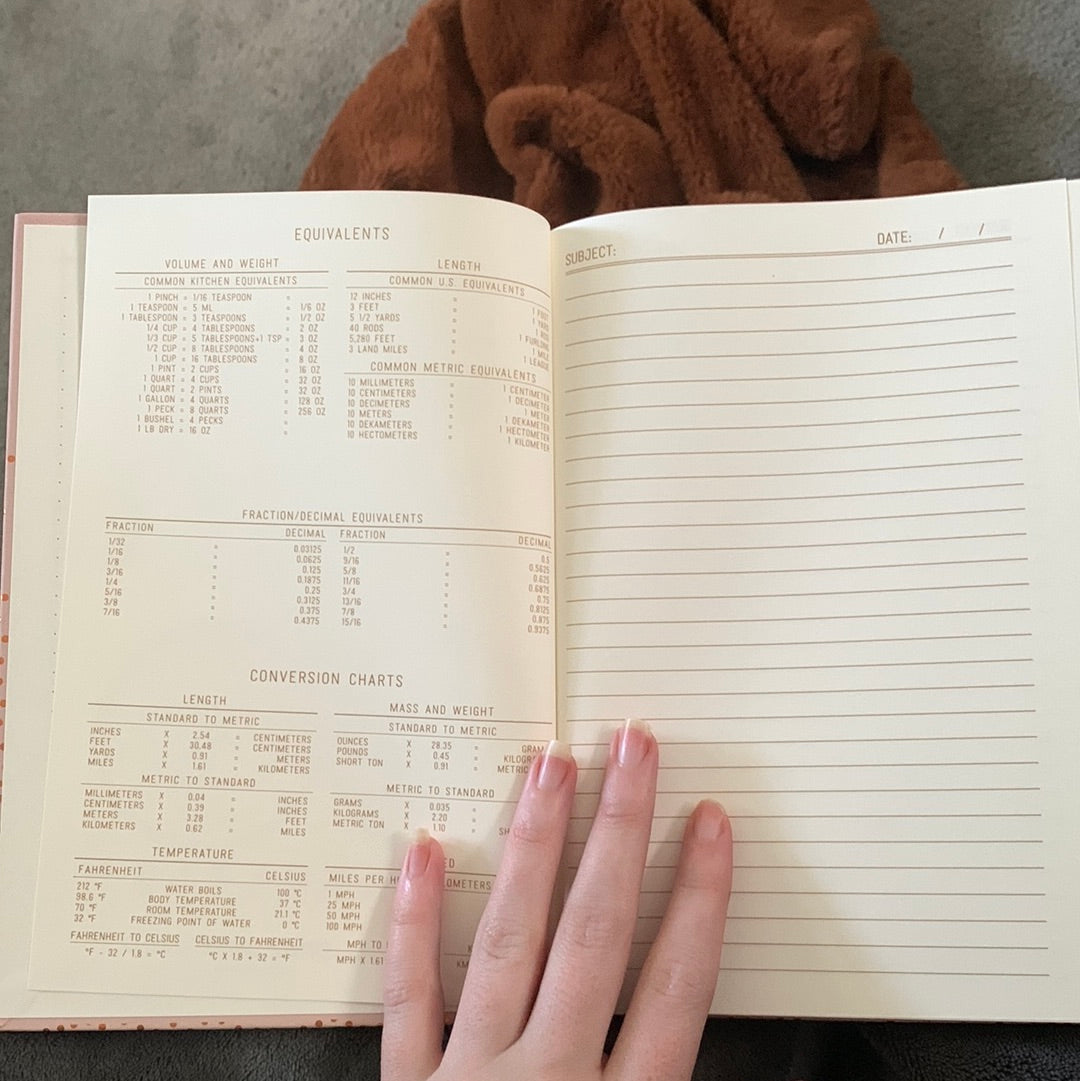 EQUIVALENTS
VOLUME AND WEIGHT
COMMON KITCHEN EQUIVALENTS
1 PINCH = 1/16 TEASPOON =
1 TEASPOON = 5 ML = 1/6 OZ
1 TABLESPOON = 3 TEASPOONS = 1/2 OZ
1/4 CUP = 4 TABLESPOONS = 2 OZ
1/3 CUP = 5 TABLESPOONS+1 TSP = 3 OZ
1/2 CUP = 8 TABLESPOONS = 4 OZ
1 CUP = 16 TABLESPOONS = 8 OZ
1 PINT = 2 CUPS = 16 OZ
1 QUART = 4 CUPS = 32 OZ
1 QUART = 2 PINTS = 32 OZ
1 GALLON = 4 QUARTS = 128 OZ
1 PECK = 8 QUARTS = 256 OZ
1 BUSHEL = 4 PECKS =
1 LB DRY = 16 OZ =
LENGTH
COMMON U.S. EQUIVALENTS
12 INCHES = 1 FOOT
3 FEET = 1 YARD
5 1/2 YARDS = 1 ROD
40 RODS = 1 FURLONG
5,280 FEET = 1 MILE
3 LAND MILES = 1 LEAGUE
COMMON METRIC EQUIVALENTS
10 MILLIMETERS = 1 CENTIMETER
10 CENTIMETERS = 1 DECIMETER
10 DECIMETERS = 1 METER
10 METERS = 1 DEKAMETER
10 DEKAMETERS = 1 HECTOMETER
10 HECTOMETERS = 1 KILOMETER
FRACTION/DECIMAL EQUIVALENTS
FRACTION DECIMAL FRACTION DECIMAL
1/32 = 0.03125 1/2 = 0.5
1/16 = 0.0625 9/16 = 0.5625
1/8 = 0.125 5/8 = 0.625
3/16 = 0.1875 11/16 = 0.6875
1/4 = 0.25 3/4 = 0.75
5/16 = 0.3125 13/16 = 0.8125
3/8 = 0.375 7/8 = 0.875
7/16 = 0.4375 15/16 = 0.9375
CONVERSION CHARTS
LENGTH
STANDARD TO METRIC
INCHES X 2.54 = CENTIMETERS
FEET X 30.48 = CENTIMETERS
YARDS X 0.91 = METERS
MILES X 1.61 = KILOMETERS
METRIC TO STANDARD
MILLIMETERS X 0.04 = INCHES
CENTIMETERS X 0.39 = INCHES
METERS X 3.28 = FEET
KILOMETERS X 0.62 = MILES
MASS AND WEIGHT
STANDARD TO METRIC
OUNCES X 28.35 = GRAM
POUNDS X 0.45 = KILOGRA
SHORT TON X 0.91 = METRIC
METRIC TO STANDARD
GRAMS X 0.035 =
KILOGRAMS X 2.20 =
METRIC TON X 1.10 = SH
TEMPERATURE
FAHRENHEIT CELSIUS
212 °F WATER BOILS 100 °C
98.6 °F BODY TEMPERATURE 37 °C
70 °F ROOM TEMPERATURE 21.1 °C
32 °F FREEZING POINT OF WATER 0 °C
FAHRENHEIT TO CELSIUS CELSIUS TO FAHRENHEIT
°F - 32 / 1.8 = °C °C X 1.8 + 32 = °F
ED
MILES PER H LOMETERS
1 MPH
25 MPH
50 MPH
100 MPH
MPH TO
MPH X 1.61
SUBJECT: DATE: / /